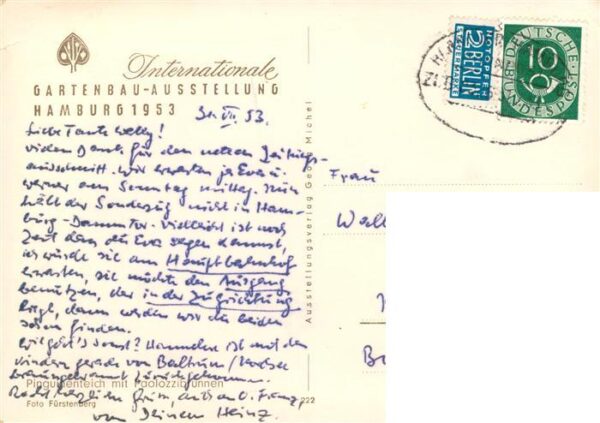 Internationale
GARTENBAU-AUSSTELLUNG
HAMBURG 1953
53.
Liebe Tante Wally!
vielen Dank für den netten Zeitungs-
ausschnitt. Wir erwarten ja Eva u.
Werner am Sonntag mittag. Nun
hält der Sonderzug nicht in Ham-
burg-Dammtor. Vielleicht ist noch
Zeit dass du Eva sagen kannst,
ich würde sie am Hauptbahnhof
erwarten, sie möchte den Ausgang
benutzen, der in der Zugrichtung
liegt, dann werden wir die beiden
schon finden.
Wie geht's sonst? Hannelore ist mit den
Kindern gerade von Baltrum/Nordsee
braungebrannt zurückgekommen.
Recht herzlichen
von Deinem Heinz.
Pinguinenteich mit Paolozzibrunnen
Foto Fürstenberg
222
Ausstellungsverlag Georg Michel
NOTOPFER
2 BERLIN
STEUERMARKE
DEUTSCHE
BUNDESPOST
10
Frau
Wall
B